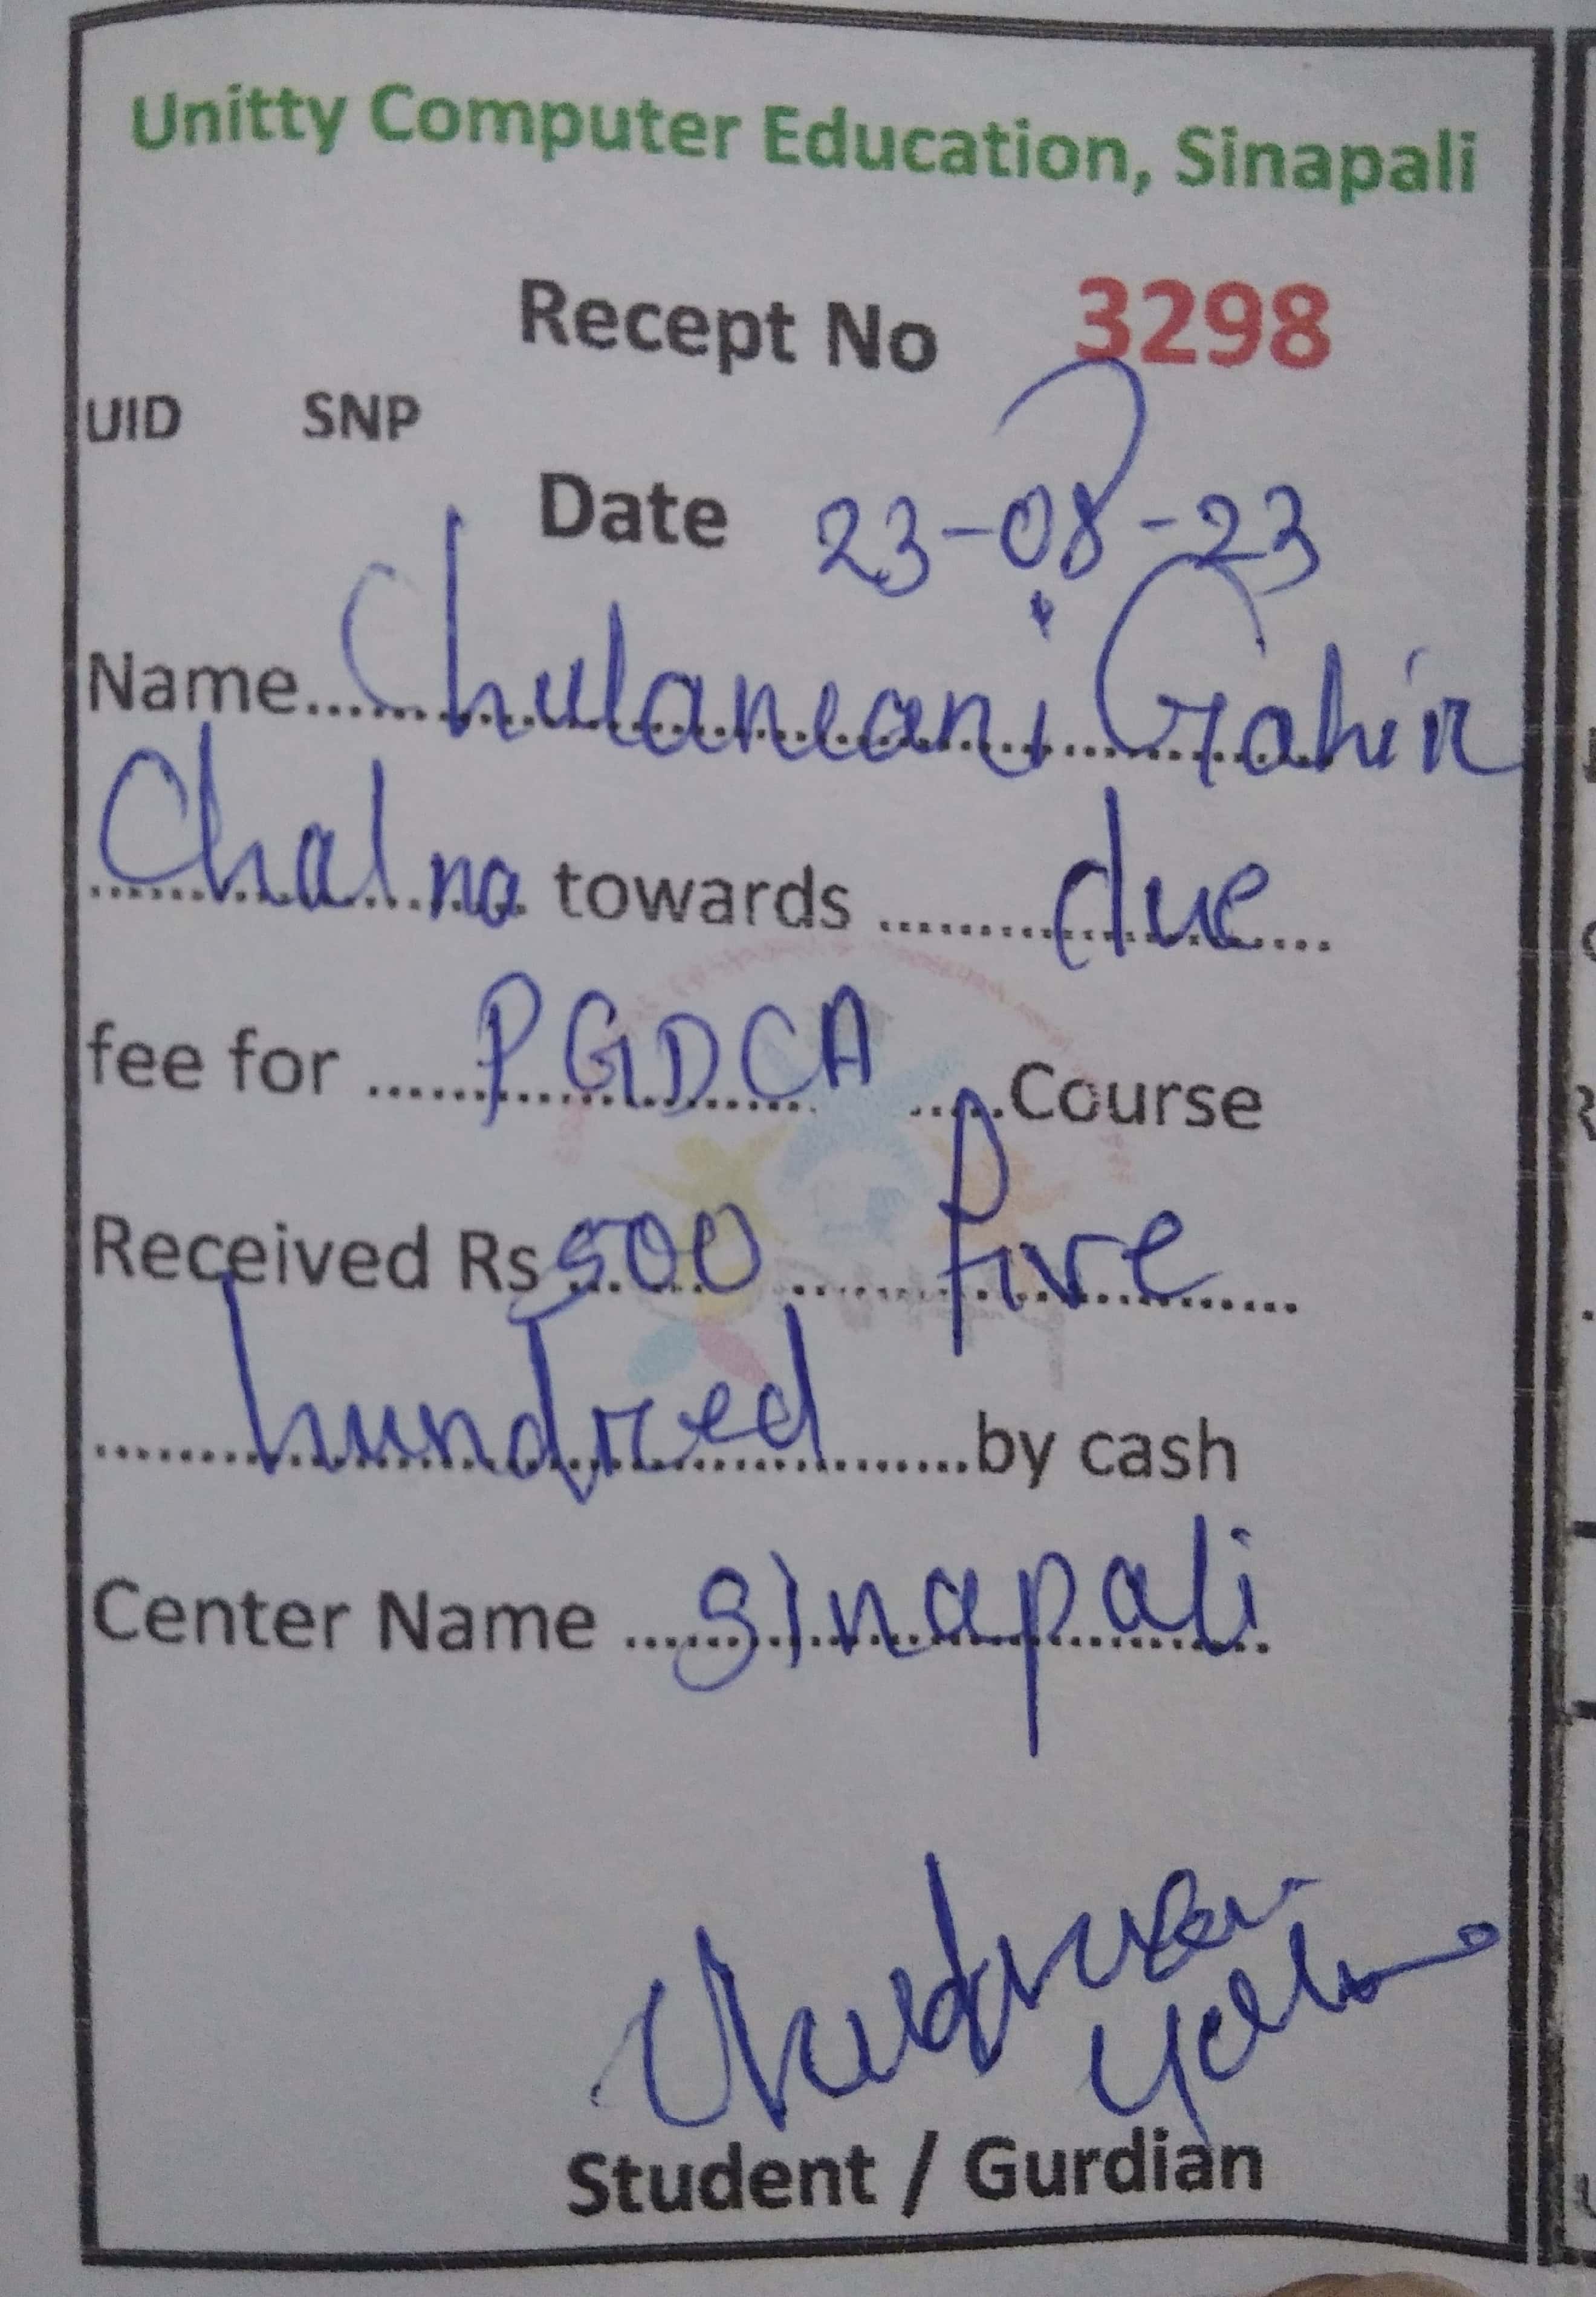 Unitty Computer Education, Sinapali
Recept No 3298
UID SNP
Date 23-08-23
Name......Chulamani Gahir
Chalna towards ........due....
fee for ......PGDCA ......Course
Received Rs 500 ........five........
........hundred........by cash
Center Name ......sinapali......
Student / Gurdian